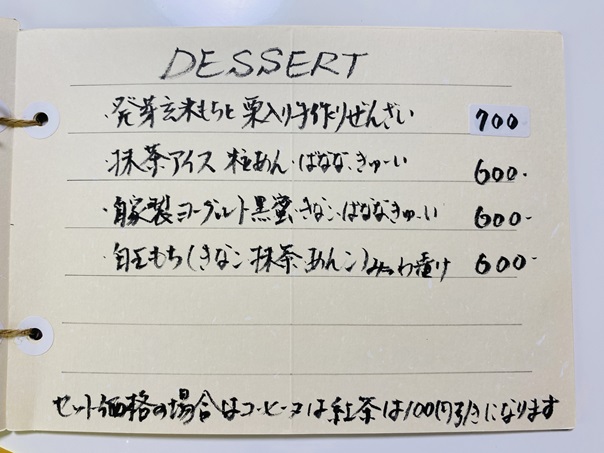 DESSERT
・発芽玄米もちと栗入り手作りぜんざい 700
・抹茶アイス 粒あん・ばなな・きゅーい 600-
・自家製ヨーグルト黒蜜・きなこ・ばななきゅーい 600-
・白玉もち(きなこ 抹茶・あんこ) 漬け 600-
セット価格の場合はコーヒー又は紅茶は100円引きになります